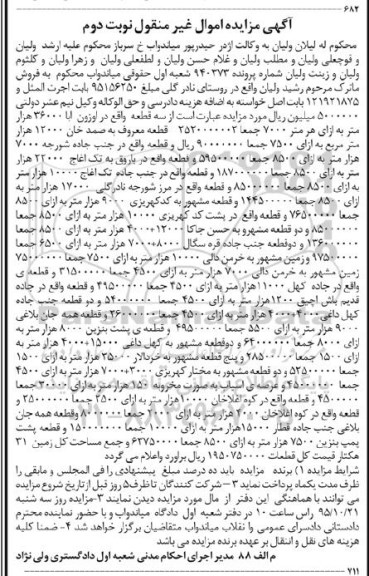 ۶۸۲
آگهی مزایده اموال غیر منقول نوبت دوم
محکوم له لیلان ولیان به وکالت اژدر حیدرپور میلدواب خ سرباز محکوم علیه ارشد ولیان
و قوچعلی ولیان و مطلب ولیان و غلام حسن ولیان و لطفعلی ولیان و زهرا ولیان و کلثوم
ولیان و زینت ولیان شماره پرونده ۹۴۰۳۷۳ شعبه اول حقوقی میاندواب محکوم به فروش
ماترک مرحوم رشید ولیان واقع در روستای نادر گلی مبلغ ۹۵۱۵۶۲۵۰ بابت اجرت المثل و
۱۲۱۹۲۱۸۷۵ بابت اصل خواسته به اضافه هزینه دادرسی و حق الوکاله وکیل نیم عشر دولتی
۵۰۰۰۰۰۰ میلیون ریال مورد مزایده عبارت است از سه قطعه واقع در اوزون آبا ۳۶۰۰۰ هزار
متر به ازای هر متر ۷۰۰۰ جمعا ۲۵۲۰۰۰۰۰۰۲ قطعه معروف به صمد خان ۱۲۰۰۰ هزار
متر مربع به ازای ۷۵۰۰ جمعا ۹۰۰۰۰۰۰۰ ریال و قطعه واقع در جنب جاده شورجه ۷۰۰۰
هزار متر به ازای ۸۵۰۰ جمعا ۵۹۵۰۰۰۰۰ و قطعه واقع در یاروق به تک اغاج ۲۲۰۰۰ هزار
متر به ازای ۸۵۰۰ جمعا ۱۸۷۰۰۰۰۰۰ و قطعه واقع در جنب جاده تک اغاج ۱۰۰۰۰ هزار متر
به ازای ۸۵۰۰ جمعا ۸۵۰۰۰۰۰۰ و قطعه واقع در مرز شورجه نادر گلی ۱۷۰۰۰ هزار متر به
ازای ۸۵۰۰ جمعا ۱۴۴۵۰۰۰۰۰ و قطعه مشهور به کدکهریزی ۹۰۰۰ هزار متر به ازای ۸۵۰۰
جمعا ۷۶۵۰۰۰۰۰ و قطعه واقع در پشت کد کهریزی ۱۰۰۰۰ هزار متر به ازای ۸۵۰۰ جمعا
و دو قطعه مشهور به حسن جاکا
و دوقطعه جنب جاده قره سگال
و زمین مشهور به خرمن دالی ۱۰۰۰۰ هزار متر به ازای ۷۵۰۰ جمعا
زمین مشهور به خرمن دالی ۷۰۰۰ هزار متر به ازای ۴۵۰۰ جمعا ۳۱۵۰۰۰۰۰ و قطعه ی
واقع در جاده کهل ۱۱۰۰۰ هزار متر به ازای ۴۵۰۰ جمعا ۴۹۵۰۰۰۰۰ و قطعه واقع در جاده
قدیم باش اچیق ۱۲۰۰۰ هزار متر به ازای ۴۵۰۰ جمعا ۵۴۰۰۰۰۰۰ و دو قطعه جنب جاده
کهل داغی
۹۰۰۰ هزار متر به ازای ۵۵۰۰ جمعا ۴۹۵۰۰۰۰۰ و قطعه ی پشت بنزین ۸۰۰۰ هزار متر به
ازای ۸۰۰۰ جمعا ۶۴۰۰۰۰۰۰ و دوقطعه مشهور به کهل داغی
ازای ۱۵۰۰ جمعا و پنج قطعه مشهور به خردلار
جمعا و دو قطعه مشهور به مختار کهریزی
جمعا و عرصه ی اسیاب به صورت مخروبه ۱۵۰۰ هزار متر به ازای ۳۰۰۰۰ جمعا
۴۵۰۰۰۰۰۰ و قطعه واقع در کوه اغلاخان ۱۰۰۰۰ هزار متر به ازای ۲۵۰۰ جمعا ۲۵۰۰۰۰۰۰ و
قطعه واقع در کوه اغلاخان
بلاغی جنب جاده قطار ۱۵۰۰۰ هزار متر به ازای و قطعه پشت
پمپ بنزین ۷۵۰۰ هزار متر به ازای ۸۵۰۰ جمعا ۶۳۷۵۰۰۰۰ و جمع مساحت کل زمین ۳۱
هکتار قیمت کل قطعات ۱۹۵۰۷۵۰۰۰۰ ریال براورد واعلام می گردد
شرایط مزایده ۱) برنده مزایده باید ده درصد مبلغ پیشنهادی را فی المجلس و مابقی را
ظرف مدت یکماه پرداخت نماید ۲- شرکت کنندگان تاظرف ۵ روز قبل از تاریخ شروع مزایده
می توانند با هماهنگی این دفتر از مال مورد مزایده دیدن نمایند ۳- مزایده روز سه شنبه
۹۵/۱۰/۲۱ راس ساعت ۱۰ در دفتر شعبه اول دادگاه میاندواب و با حضور نماینده محترم
دادستانی دادسرای عمومی وا نقلاب میاندواب متقاضیان برگزار خواهد شد ۴- ضمنا کلیه
هزینه های نقل و انتقال بر عهده برنده مزایده می باشد
م الف ۸۸ مدیر اجرای احکام مدنی شعبه اول دادگستری ولی نژاد
۷۱۱